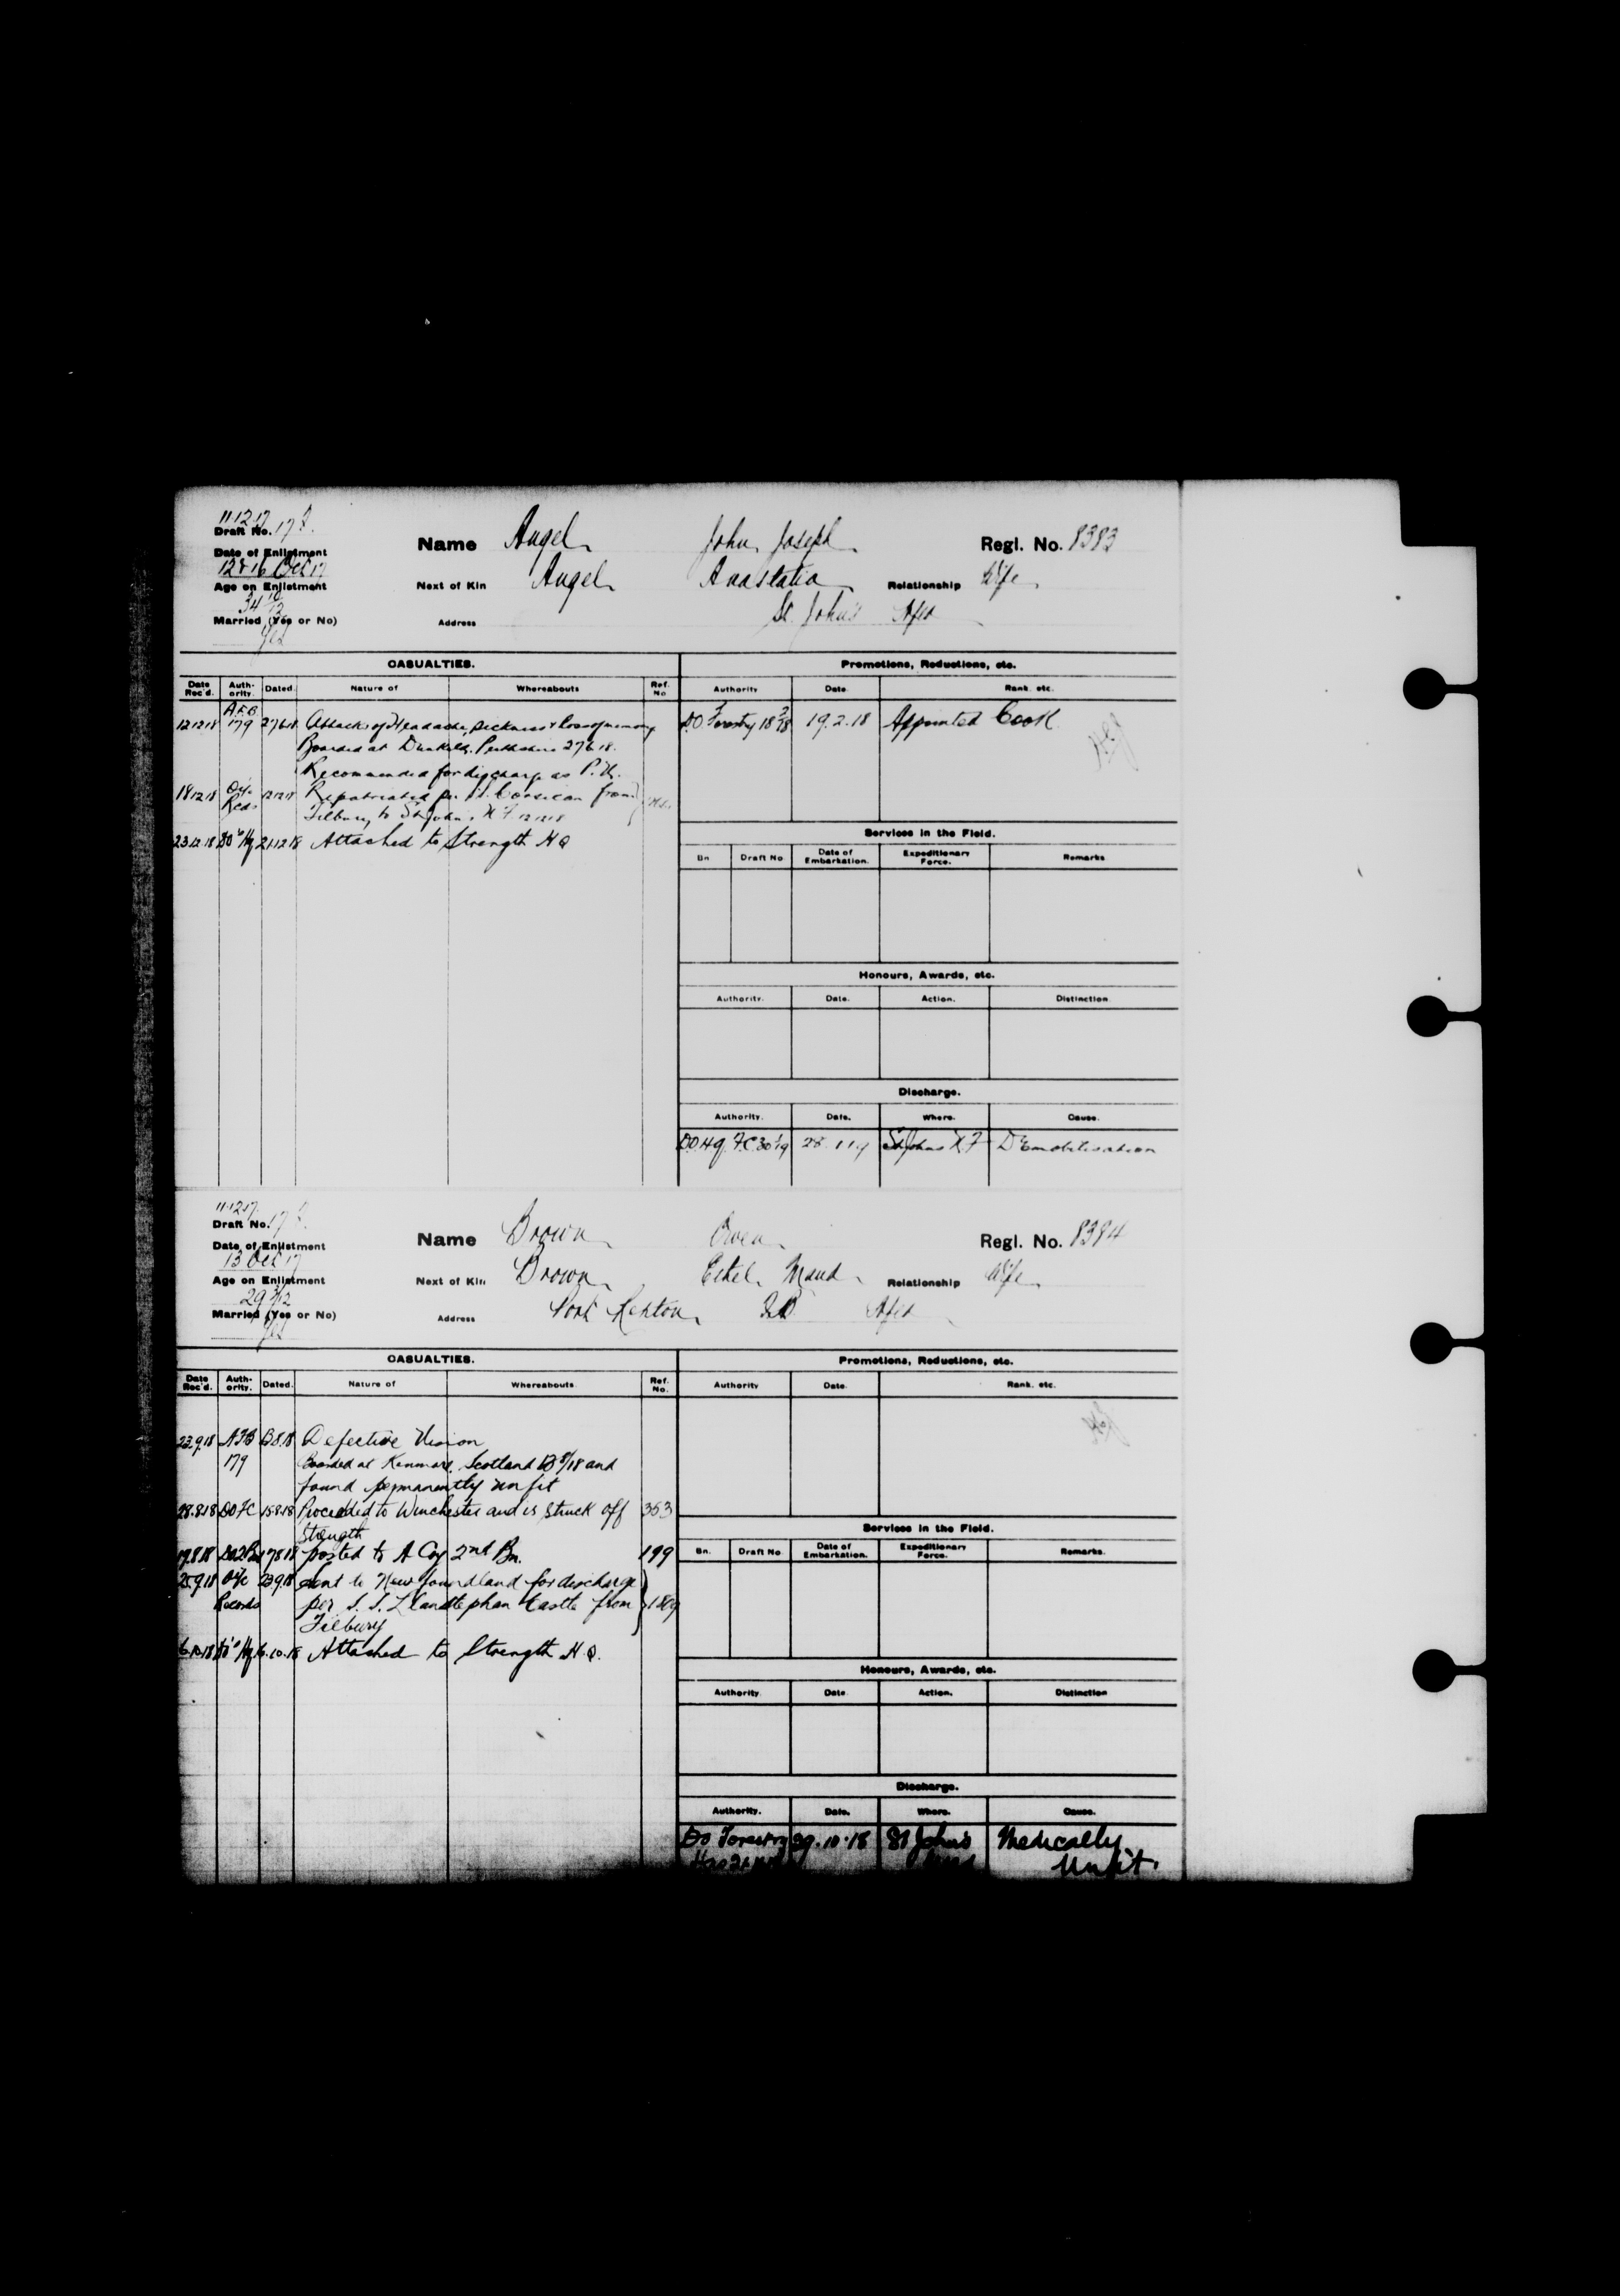 11.12.17
Draft No. 17
Name Angel John Joseph Regl. No. 8383
Date of Enlistment
12 & 16 Oct 17
Age on Enlistment
Next of Kin Angel Anastatia Relationship Wife
34
Married (Yes or No)
Address St. John's Nfld
Yes
CASUALTIES. Promotions, Reductions, etc.
Date Rec'd. Auth-ority. Dated. Nature of Whereabouts Ref. No Authority Date. Rank. etc.
12.12.18 A.F.B. 179 27.6.18 Attacks of Headache, sickness & loss of memory
Boarded at Dunkeld, Perthshire 27.6.18.
Recommended for discharge as P.U.
D.O. Forestry 18 19.2.18 Appointed Cook
18.12.18 O i/c Recds 12.12.18 Repatriated per Corsican from
Tilbury to St John's N.F. 12.12.18
23.12.18 21.12.18 Attached to Strength H Q
Services in the Field.
Bn Draft No Date of Embarkation. Expeditionary Force. Remarks
Honours, Awards, etc.
Authority. Date. Action. Distinction
Discharge.
Authority. Date. Where. Cause.
D.O. Hq. F.C. 28.1.19 St Johns N F Demobilisation
11.12.17
Draft No. 17
Name Brown Owen Regl. No. 8384
Date of Enlistment
13 Oct 17
Age on Enlistment
Next of Kin Brown, Ethel Maud Relationship Wife
29
Married (Yes or No)
Address Port Rexton T.B. Nfld
Yes
CASUALTIES. Promotions, Reductions, etc.
Date Rec'd. Auth-ority. Dated. Nature of Whereabouts Ref. No. Authority Date. Rank. etc.
23.9.18 AFB 179 13.8.18 Defective Vision
Boarded at Kenmore, Scotland and
found permanently unfit
28.8.18 DO FC 15.8.18 Proceeded to Winchester and is struck off 353
Strength
19.8.18 17.8.18 posted to A Coy 2nd Bn. 199
25.9.18 O i/c Records 23.9.18 sent to Newfoundland for discharge
per S. S. Llandstephan Castle from 189
Tilbury
6.10.18 6.10.18 Attached to Strength H.Q.
Services in the Field.
Bn. Draft No Date of Embarkation. Expeditionary Force. Remarks.
Honours, Awards, etc.
Authority. Date. Action. Distinction
Discharge.
Authority. Date. Where. Cause.
DO Forestry 29.10.18 St John's Medically
Unfit.